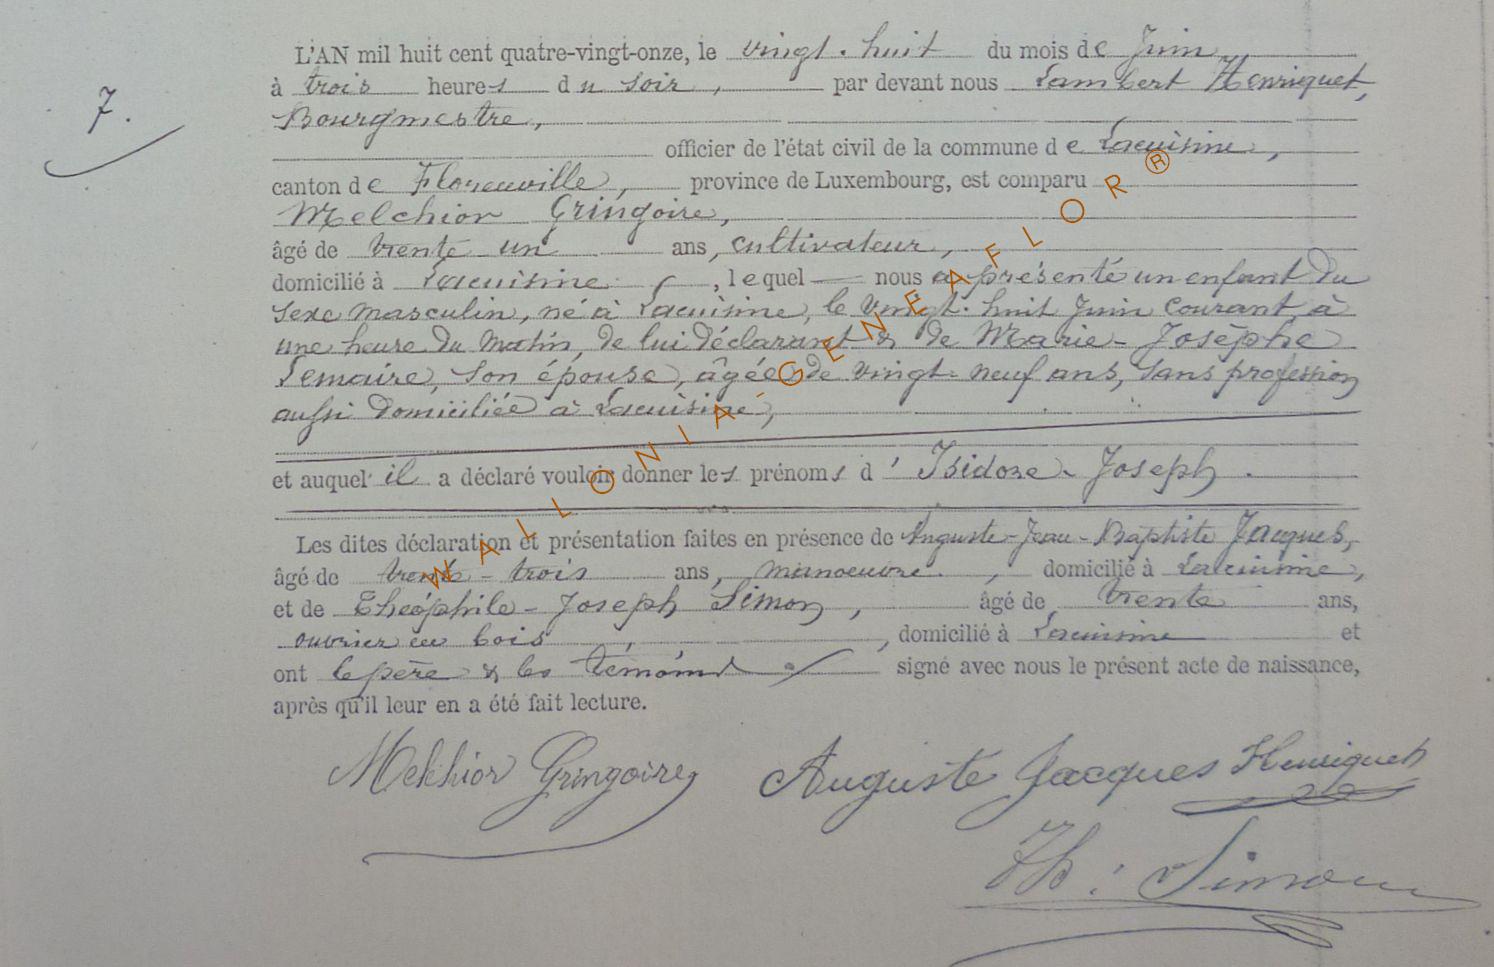 L'AN mil huit cent quatre-vingt-onze, le vingt-huit du mois de Juin
à trois heures du soir, par devant nous Lambert Henriquet,
7.
Bourgmestre,
officier de l'état civil de la commune de Lacuisine,
canton de Florenville, province de Luxembourg, est comparu
Melchior Gringoire,
âgé de trente un ans, cultivateur,
domicilié à Lacuisine, lequel nous a présenté un enfant du
sexe masculin, né à Lacuisine, le vingt-huit Juin courant, à
une heure du matin, de lui déclarant & de Marie-Josèphe
Lemaire, son épouse, âgée de vingt-neuf ans, sans profession
aussi domiciliée à Lacuisine,
et auquel il a déclaré vouloir donner les prénoms d'Isidore-Joseph.
Les dites déclaration et présentation faites en présence de Auguste-Jean-Baptiste Jacques,
âgé de trente-trois ans, manoeuvre, domicilié à Lacuisine,
et de Théophile-Joseph Simon, âgé de trente ans,
ouvrier en bois, domicilié à Lacuisine et
ont le père & les témoins signé avec nous le présent acte de naissance,
après qu'il leur en a été fait lecture.
Melchior Gringoire Auguste Jacques Henriquet
Th: Simon
WALLONIA-GENEAFLOR®